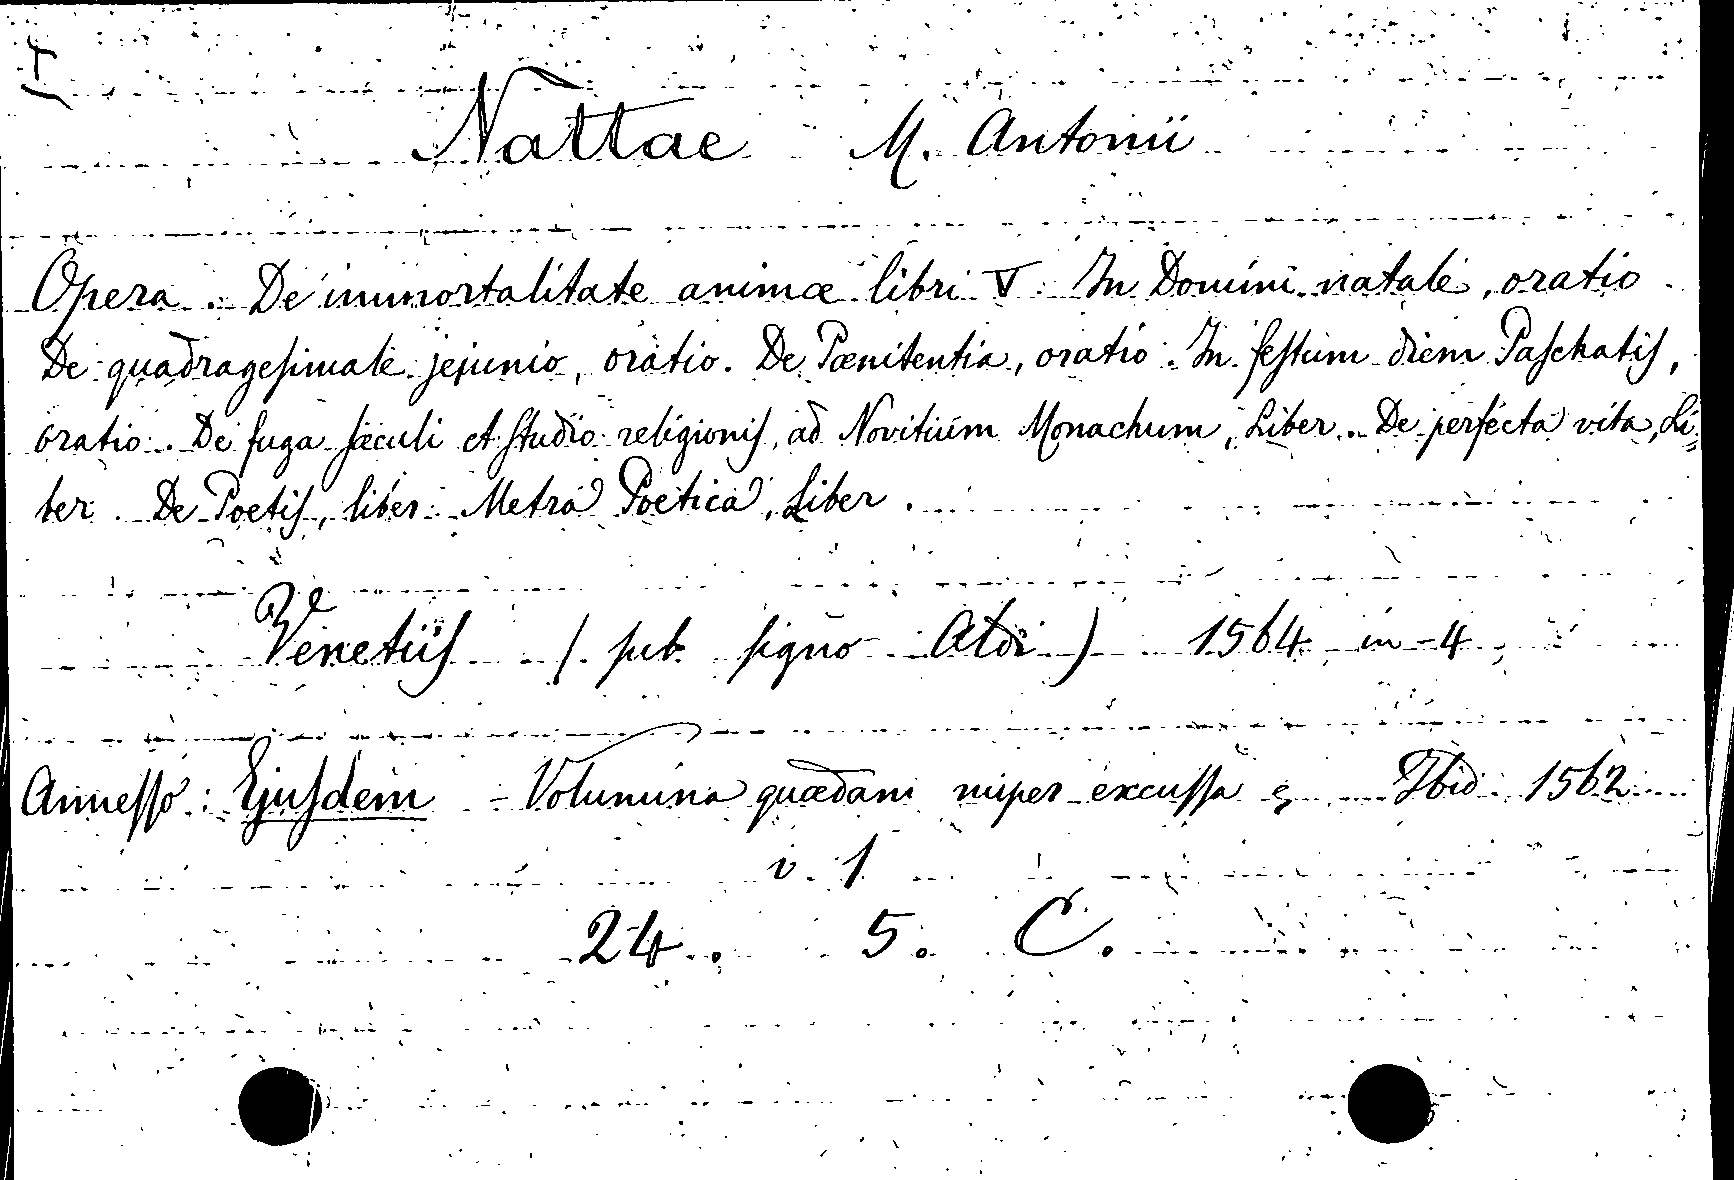 Nattae M. Antonii
Opera. De immortalitate animæ libri V. In Domini natale, oratio.
De quadragesimale jejunio, oratio. De Pœnitentia, oratio. In festum diem Paschatis,
oratio. De fuga sæculi et studio religionis, ad Novitium Monachum, Liber. De perfecta vita, Li=
ber. De Poetis, liber. Metra Poetica, Liber.
Venetiis (sub signo Aldi) 1564 in-4,
Annesso: Ejusdem - Volumina quædam nuper excussa Ibid. 1562
v. 1
24. 5. C.